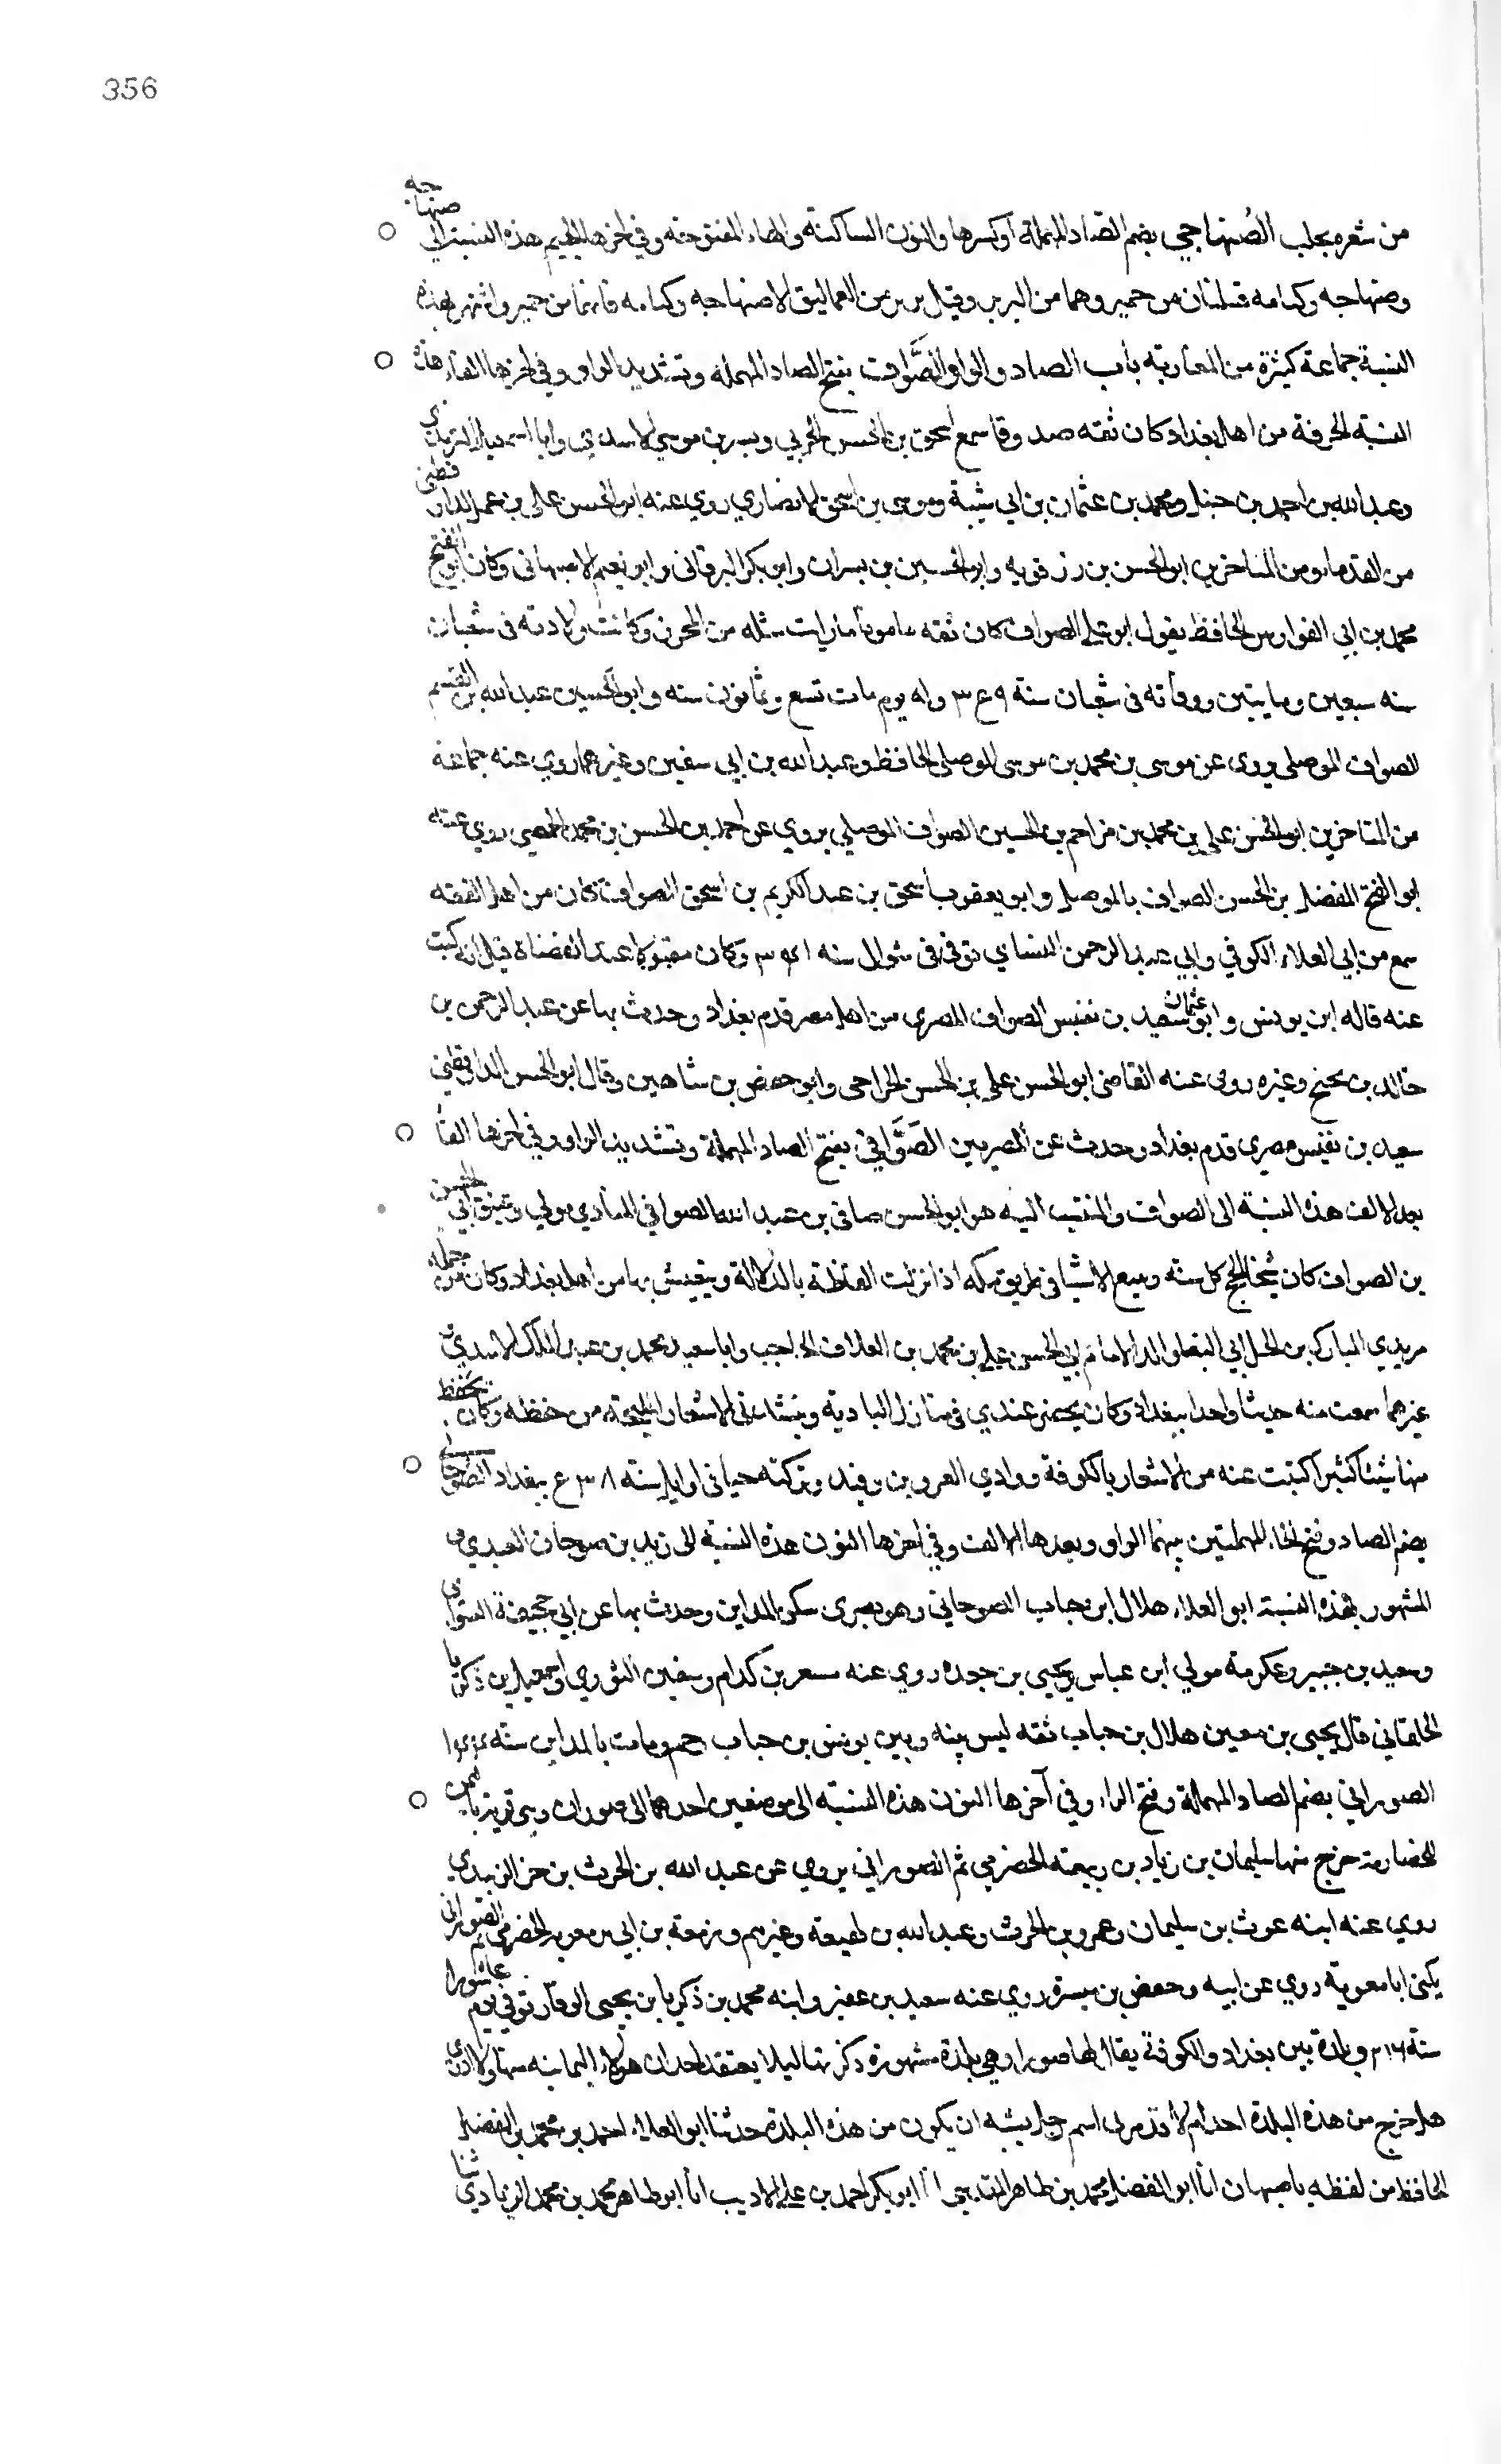 356
من شعره بحلب الصُنهاجي بضم الصاد المهملة او كسرها والنون الساكنة والهاء المفتوحة وفي اخرها الجيم هذه النسبة الى صنهاجه
وصنهاجه وكتامه قبيلتان من حمير وهما من البربر وقيل بربر من العماليق الا صنهاجه وكتامه فانهما من حمير واشتهر بهذه
النسبة جماعة كثيرة من المغاربة باب الصاد والواو الصَّواف بفتح الصاد المهملة وتشديد الواو وفي اخرها الفاء هذه
النسبة لحرفة من اهل بغداد كان ثقه صدوقا سمع اسحق بن الحسن الحربي وبشر بن موسى الاسدي وابا اسمعيل الترمذي
وعبد الله بن احمد بن حنبل ومحمد بن عثمان بن ابي شيبة وموسى بن اسحق الانصاري روي عنه ابو الحسن علي بن عمر الدارقطني
من القدماء ومن المتاخرين ابو الحسن بن رزقويه وابو الحسين بن بسران وابو بكر البرقانى وابو نعيم الاصبهانى وكان ابو الفتح
محمد بن ابي الفوارس الحافظ يقول ابو علي الصواف كان ثقه مامونا ما رايت مثله من التحرز وكانت ولادته فى شعبان
سنه سبعين ومايتين ووفاته فى شعبان سنة ٣٤٩ وله يوم مات تسع وثمانون سنه وابو الحسين عبد الله بن القسم
الصواف الموصلى يروى عن موسى بن محمد بن موسى الموصلى الحافظ وعبد الله بن ابي سفين وغيرهما روي عنه جماعة
من المتاخرين ابو الحسن علي بن محمد بن مزاحم بن الحسين الصواف الموصلي يروي عن احمد بن الحسن بن محمد الحمصي روي عنه
ابو الفتح المفضل بن الحسن الصواف بالموصل وابو يعقوب اسحق بن عبد الكريم بن اسحق الصواف كان من اهل الفقه
سمع من ابي العلاء الكوفي وابي عبد الرحمن النساي توفى فى شوال سنه وكان مقبولا عند القضاة قيل ان كتبت
عنه قاله ابن يونس وابو عثمان سعيد بن نفيس الصواف المصرى من اهل مصر قدم بغداد وحدث بها عن عبد الرحمن بن
خالد بن نجيح وغيره روى عنه القاضى ابو الحسن علي بن الحسن الجراحى وابو حفص بن شاهين وقال ابو الحسن الدارقطنى
سعيد بن نفيس مصرى قدم بغداد وحدث عن المصريين الصَوَّافي بفتح الصاد المهملة وتشديد الواو وفي اخرها الفا
بعد الالف هذه النسبة الى الصواف والمنتسب اليه هو ابو الحسن صافى بن عبد الله الصوافى المنادي مولي وعتيق ابي الحسن
بن الصواف كان شيخا يحج كل سنة ويبيع الاشيا فى طريق مكه اذا نزلت القافلة بالدلالة ويتعيش بها من اهل بغداد وكان من جملة
مريدي المبارك بن الحل ابي البقا والد الامام ابي الحسن علي بن محمد بن العلاف الحاجب وابا سعيد محمد بن عبد الملك الاسدي
غيرهما سمعت منه حديثا واحدا ببغداد وكان يحضر عندي فى منازل البادية وينشدنى الاشعار المليحة من حفظه وكان يحفظ
منها شيئا كثيرا كتبت عنه من الاشعار بالكوفة ووادي العروس وفيد وتركته حيا فى اوايل سنة ببغداد الصُوحاني
بضم الصاد وفتح الحاء المهملتين بينهما الواو وبعدها الالف وفي اخرها النون هذه النسبة الى زيد بن صوحان العبدي
المشهور بهذه النسبة ابو العلاء هلال ابن خباب الصوحاني وهو بصرى سكن المداين وحدث بها عن ابي جحيفة السوائى
وسعيد بن جبير وعكرمة مولي ابن عباس ويحيى بن جعده روي عنه مسعر بن كدام وسفين الثوري واسمعيل بن زكريا
الخلقاني قال يحيى بن معين هلال بن خباب ثقه ليس بينه وبين يونس بن خباب رحم ومات بالمداين سنة
الصوراني بضم الصاد المهملة وفتح الراء وفي آخرها النون هذه النسبة الى موضعين احدهما الى صوران وهى قرية باليمن
للحضارمة خرج منها سليمان بن زياد بن ربيعة الحضرمي ثم الصوراني يروي عن عبد الله بن الحرث بن جزء الزبيدي
روي عنه ابنه غوث بن سليمان وعمرو بن الحرث وعبد الله بن لهيعة وغيرهم وزمعة بن ابي بن معوية الحضرمي ثم الصورانى
يكنى ابا معوية روي عن ابيه وحفص بن ميسرة روي عنه سعيد بن عفير وابنه محمد بن زكريا بن يحيى الوقار توفي يوم عاشورا
سنة وبلدة بين بغداد والكوفة يقال لها صورا وهي بلدة مشهورة ذكرتها ليلا يعتقد احد ان هولاء اليمانيه منها ولا ادرى
هل خرج من هذه البلدة احد ام لا وقد مر لى اسم رجل يشبه ان يكون من هذه البلدة حدثنا ابو العلاء احمد بن محمد بن الفضل
الحافظ من لفظه باصبهان انا ابو الفضل محمد بن طاهر المقدسى انا ابو بكر احمد بن علي الاديب انا ابو طاهر محمد بن محمد الزيادي ثنا